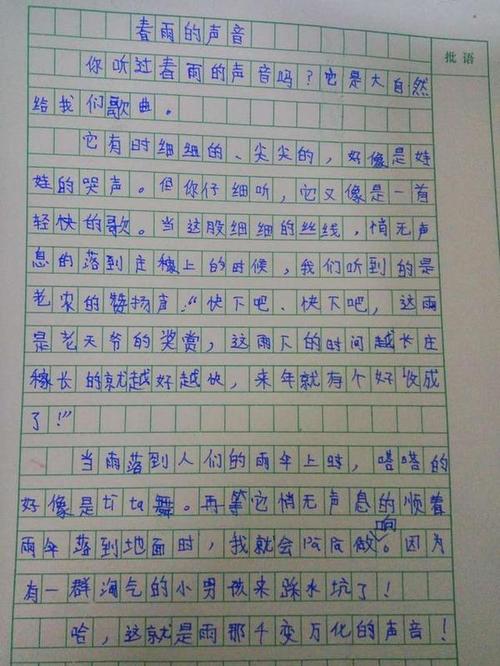 春雨的声音
批语
你听过春雨的声音吗？它是大自然
给我们歌曲。
它有时细细的、尖尖的，好像是娃
娃的哭声。但你仔细听，它又像是一首
轻快的歌。当这股细细的丝线，悄无声
息的落到庄稼上的时候，我们听到的是
老农的赞扬声：“快下吧、快下吧，这雨
是老天爷的奖赏，这雨下的时间越长庄
稼长的就越好越快，来年就有个好收成
了！”
当雨落到人们的雨伞上时，嗒嗒的
好像是ti ta舞。再等它悄无声息的顺着
雨伞落到地面时，我就会pa pa做响。因为
有一群淘气的小男孩来踩水坑了！
哈，这就是雨那千变万化的声音！